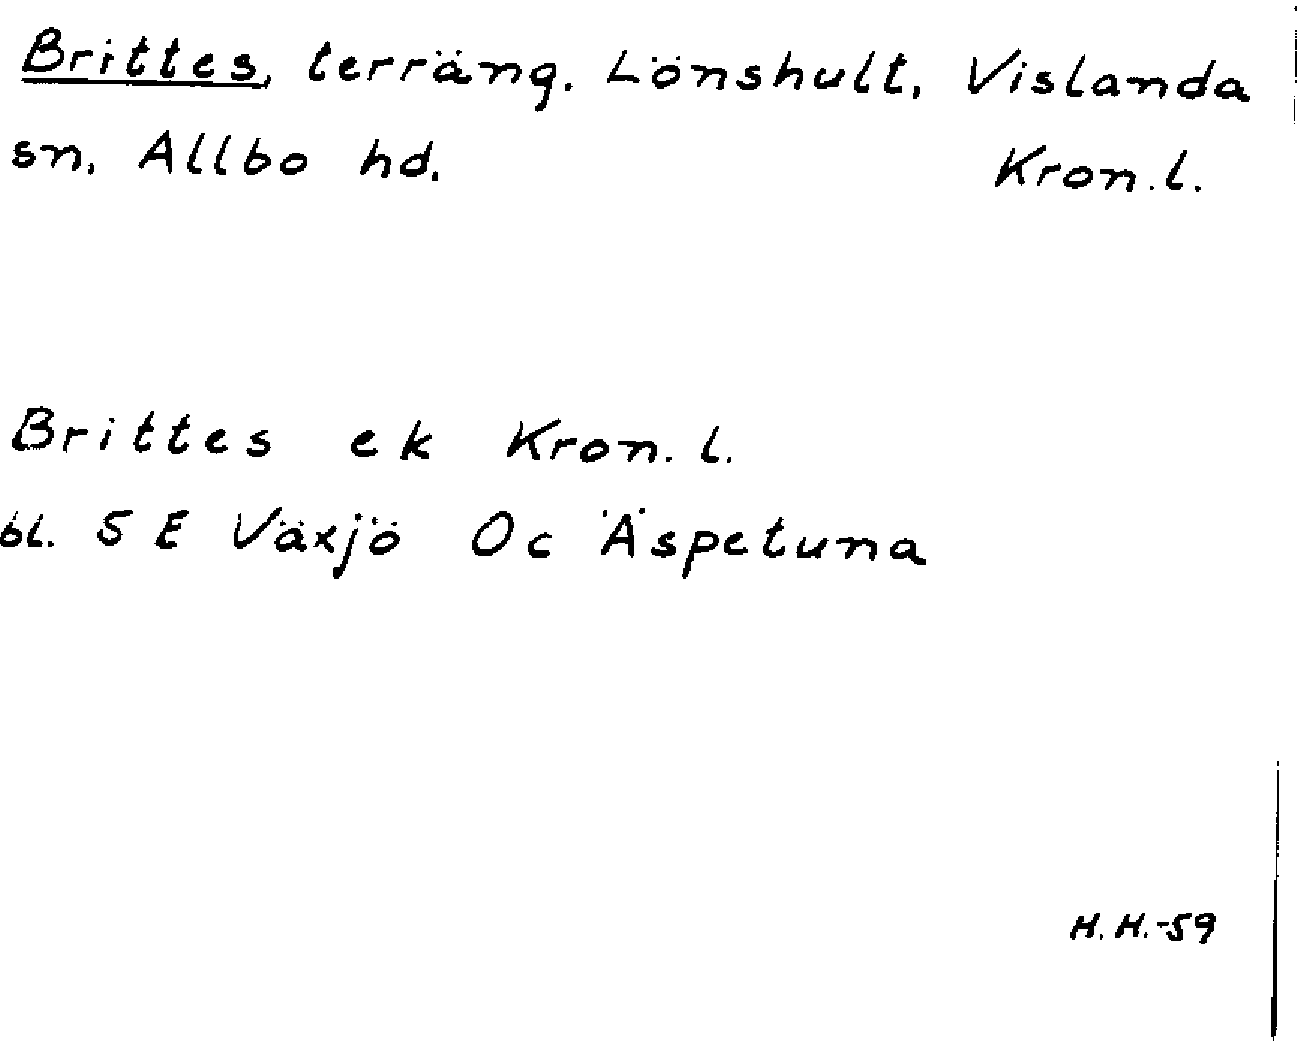 Brittes, terräng. Lönshult, Vislanda
sn, Allbo hd. Kron.l.
Brittes ek Kron.l.
bl. 5 E Växjö Oc Äspetuna
H.H.-59